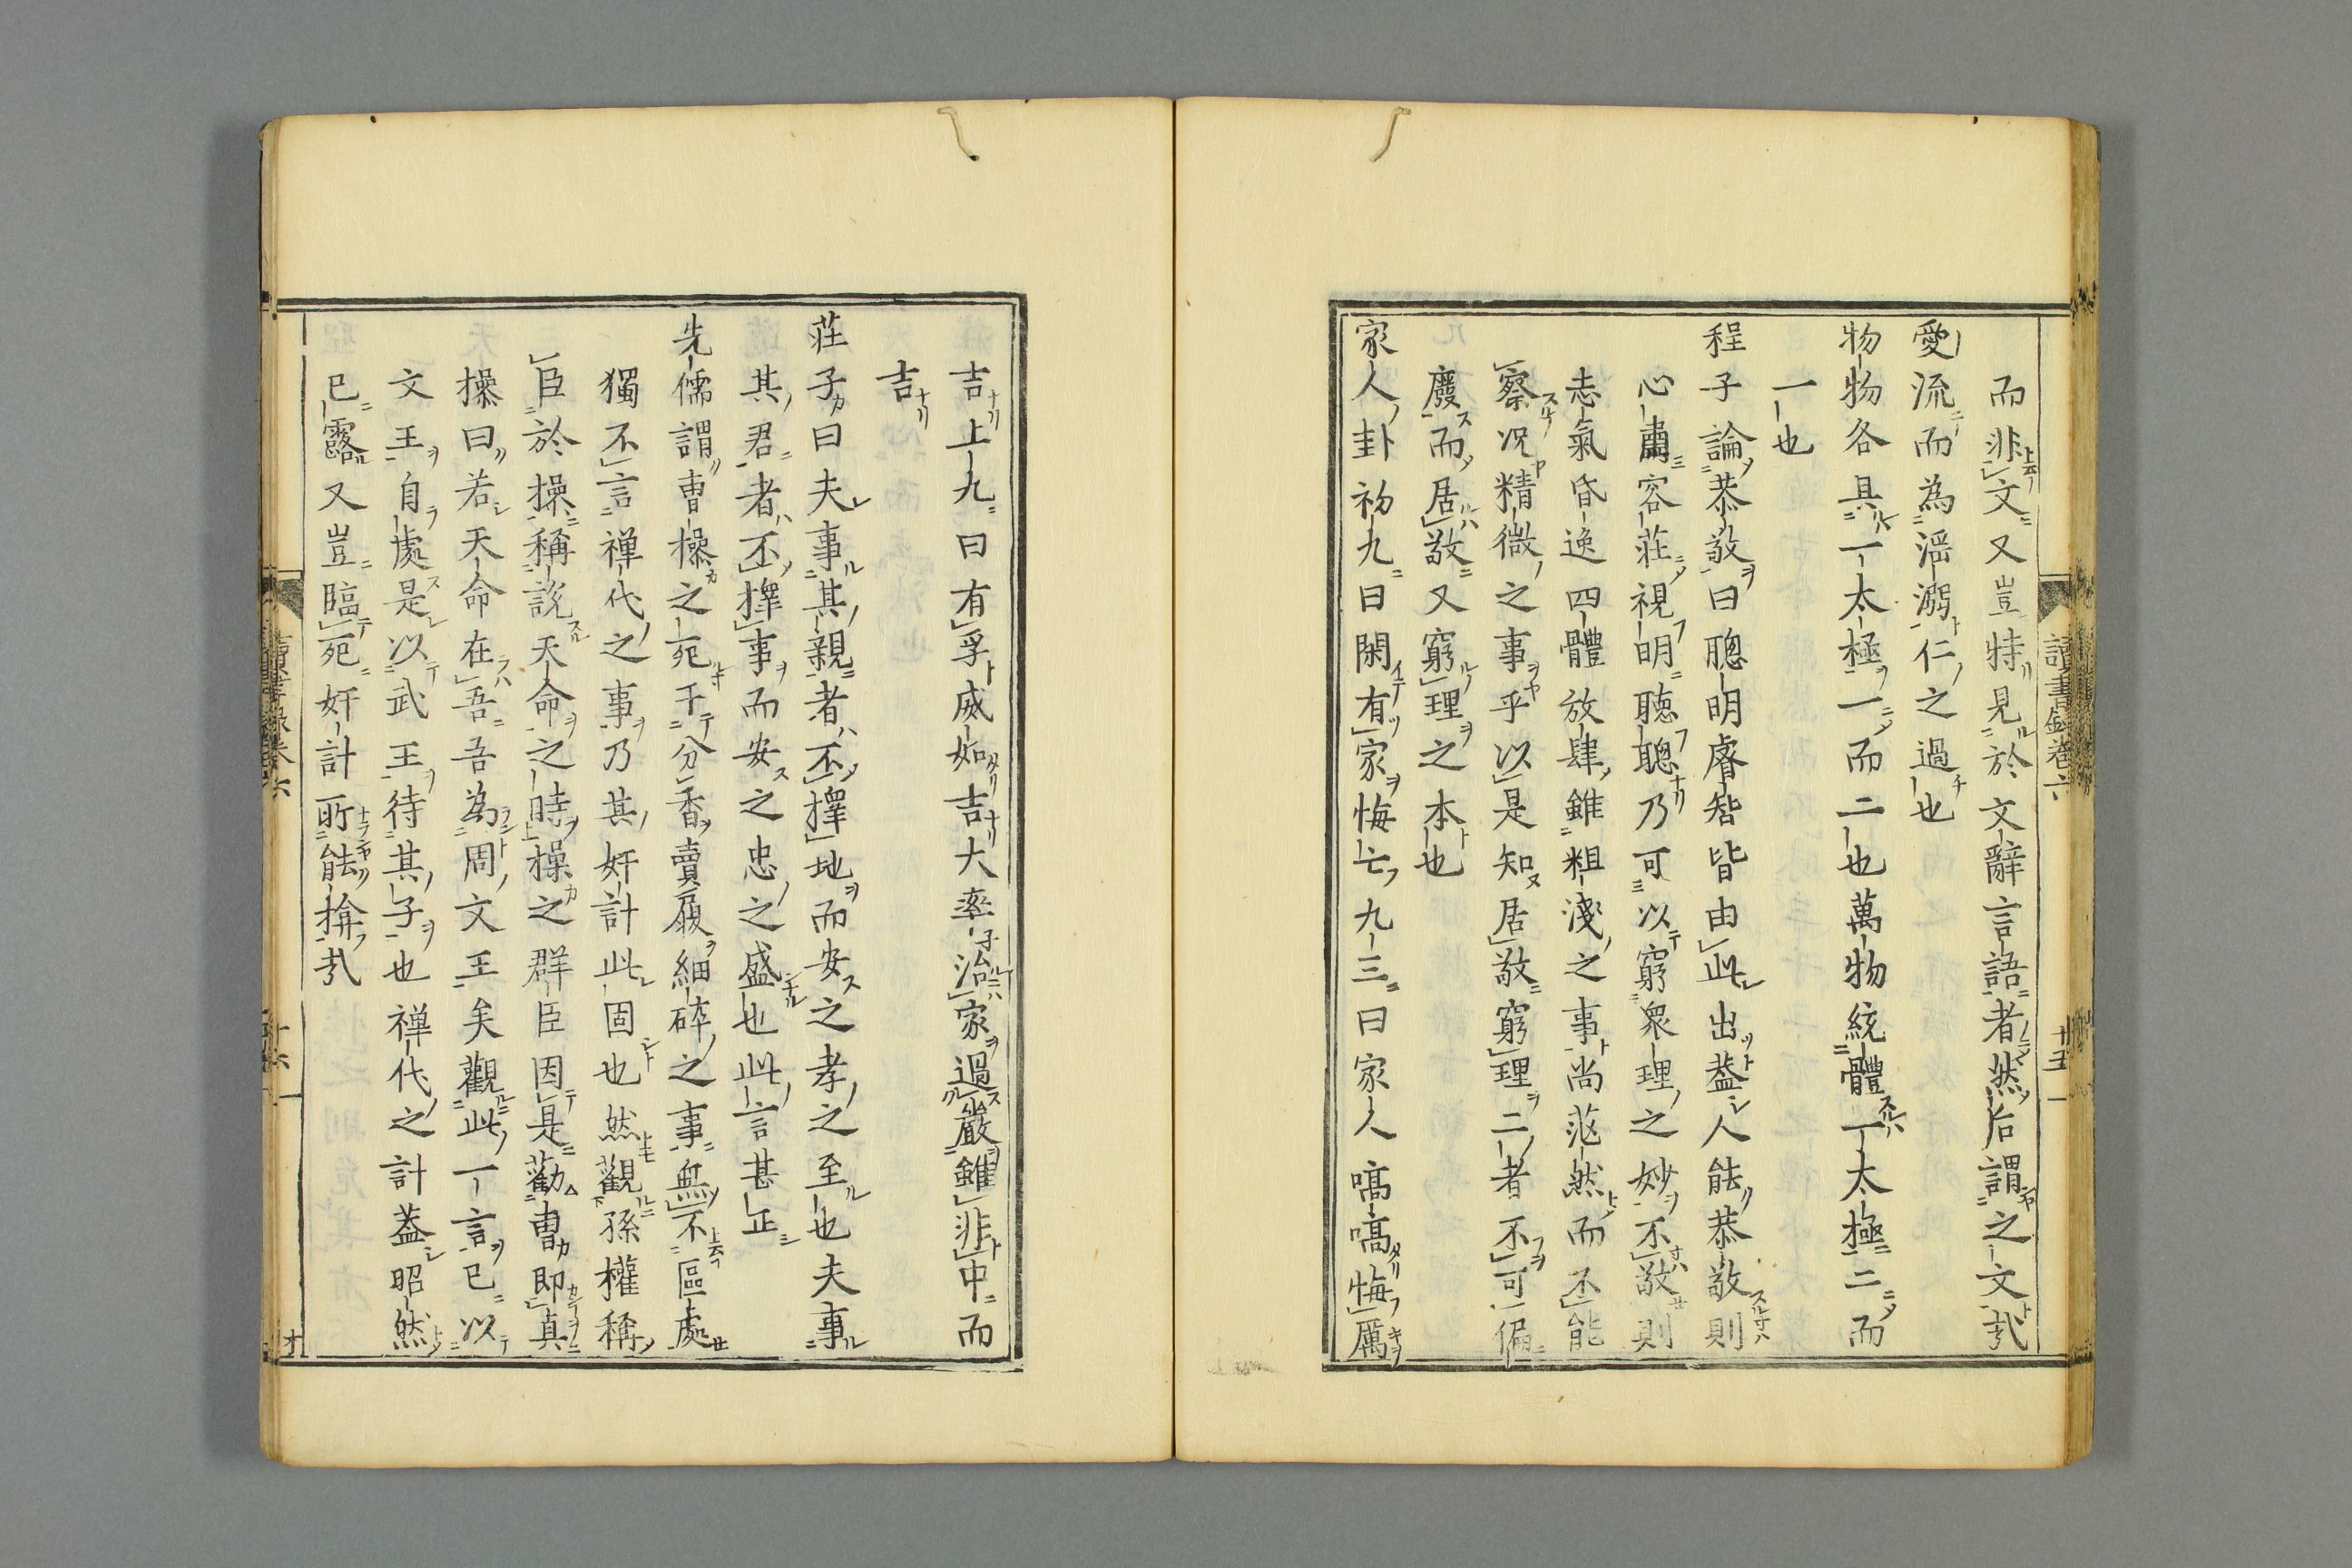 讀書錄卷六
十五
而非文又豈特見於文辭言語者然后謂之文㢤
愛流而為淫溺仁之過也
物物各具一太極一而二也萬物統體一太極二而
一也
程子論恭敬曰聰明睿智皆由此出盖人能恭敬則
心肅容莊視明聽聰乃可以窮衆理之妙不敬則
志氣昏逸四體放肆雖粗淺之事尚茫然而不能
察况精微之事乎以是知居敬窮理二者不可偏
廢而居敬又窮理之本也
家人卦初九曰閑有家悔亡九三曰家人嗃嗃悔厲
吉上九曰有孚威如吉大率治家過嚴雖非中而
吉
莊子曰夫事其親者不擇地而安之孝之至也夫事
其君者不擇事而安之忠之盛也此言甚正
先儒謂曹操之死于分香賣履細碎之事無不區處
獨不言禅代之事乃其奸計此固也然觀孫權稱
臣於操稱說天命之時操之群臣因是勸曹即真
操曰若天命在吾吾為周文王矣觀此一言已以
文王自處是以武王待其子也禅代之計盖昭然
已露又豈臨死奸計所能揜㢤
十六